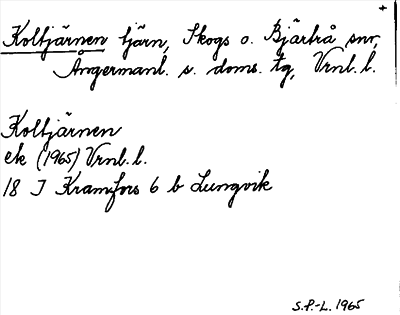 +
Koltjärnen tjärn, Skogs o. Bjärtrå snr,
Ångermanl. s. doms. tg, Vrnl. l.
Koltjärnen
ek (1965) Vrnl. l.
18 J Kramfors 6 b Lungvik
S.P.-L. 1965